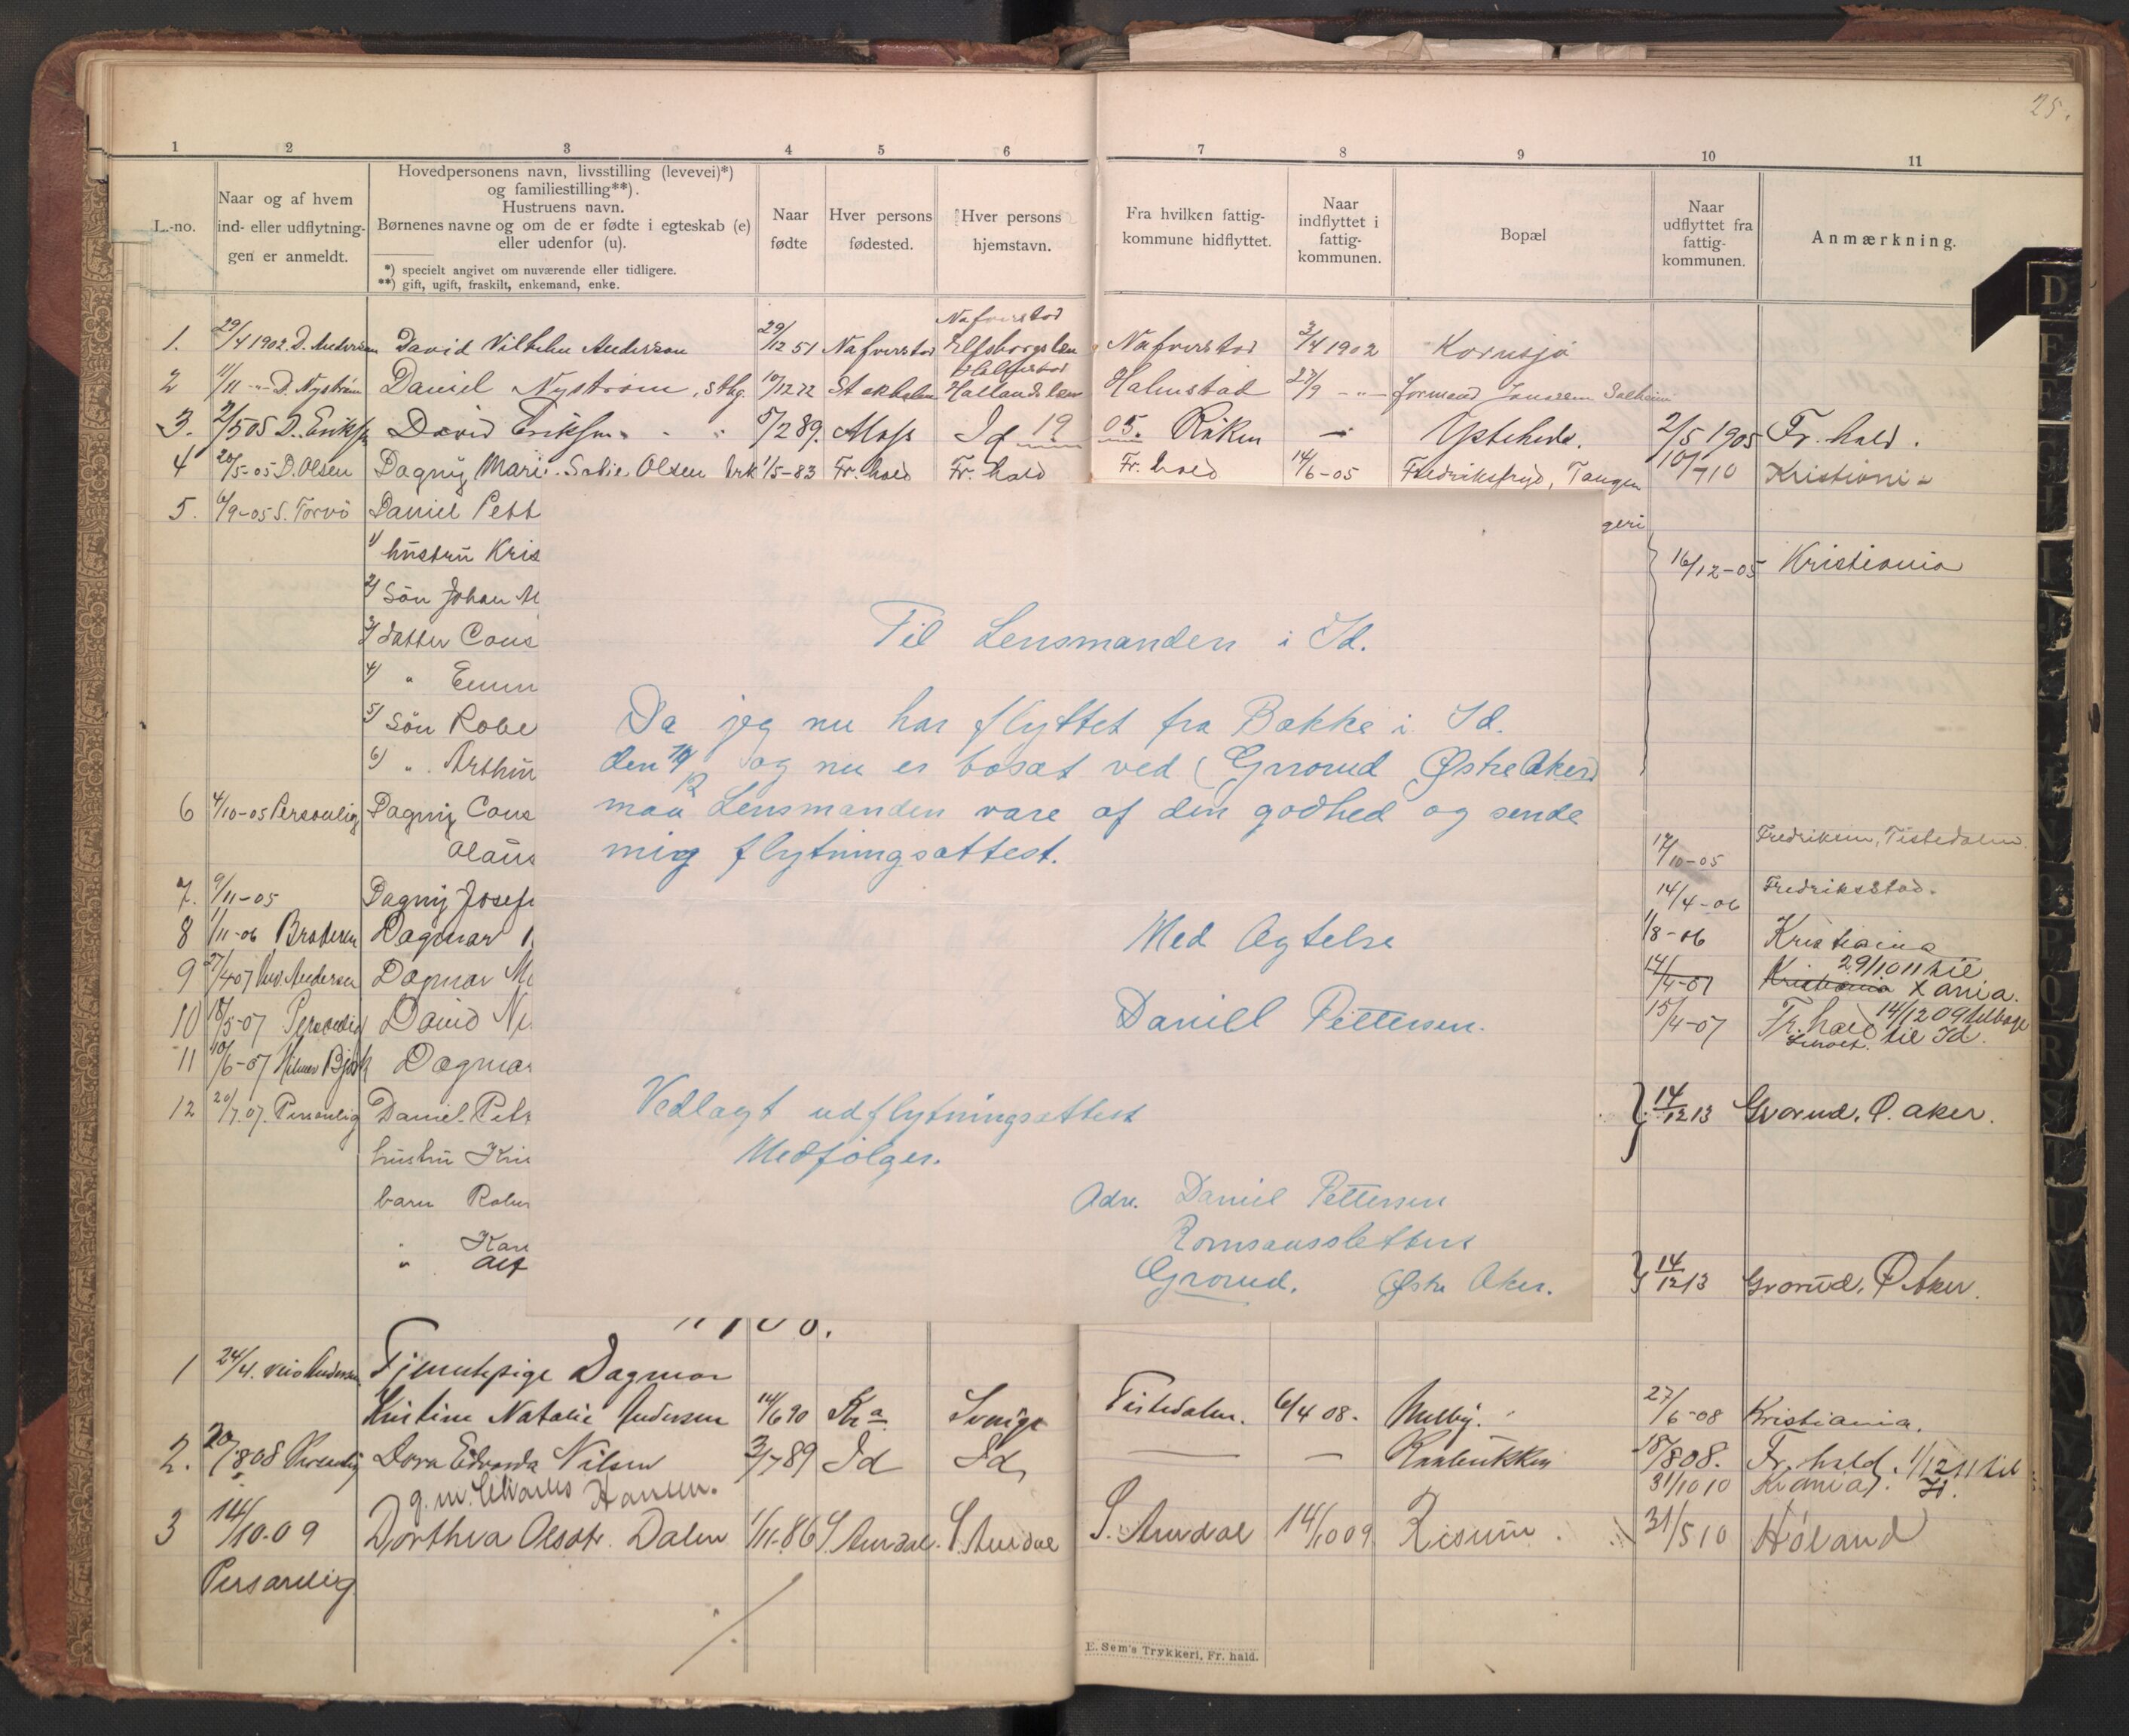 25.
1 2 3 4 5 6 7 8 9 10 11
L.-no.
Naar og af hvem
ind- eller udflytnin-
gen er anmeldt.
Hovedpersonens navn, livsstilling (levevei)*)
og familiestilling**).
Hustruens navn.
Børnenes navne og om de er fødte i egteskab (e)
eller udenfor (u).
*) specielt angivet om nuværende eller tidligere.
**) gift, ugift, fraskilt, enkemand, enke.
Naar
fødte
Hver persons
fødested.
Hver persons
hjemstavn.
Fra hvilken fattig-
kommune hidflyttet.
Naar
indflyttet i
fattig-
kommunen.
Bopæl
Naar
udflyttet fra
fattig-
kommunen.
Anmærkning.
Nafverstad
1. 29/4 1902. D. Anderson David Vilhelm Anderson 29/12 51 Nafverstad Elfsborgslen Nafverstad 3/4 1902 Kornsjø
Halmstad
2 11/11 -"- D. Nyström Daniel Nyström, sthg. 10/12 72 Stokholm Hallandslæn Halmstad 27/9 -"- formand Solheim
3. 2/5 05 D. Eriksen David Eriksen 5/2 89. Moss Id 1905. Röken - 2/5 1905 Fr. hald.
4 20/5-05 D. Olsen Dagny Marie Sofie Olsen 1/5-83 Fr. hald Fr. hald Fr. hald 14/6-05 Fredriksfryd, Tangen 10/7 10 Kristiania
5. 6/9-05 S. Torvö Daniel Pett
geri
1) hustru Kris
16/12-05 Kristiania
2) Sön Johan M
3) datter Cons
4) " Emm
5) Sön Robe
6) " Arthur
6 4/10-05 Personlig Dagny Cons
Olaus
17/10-05 Fredriksen, Tistedalen
7. 9/11-05 Dagny Josefi
14/4-06 Fredriksstad.
8 1/11-06 Brateren Dagmar
1/8-06 Kristiania
9 27/4 07 Andersen Dagmar M
14/4-07 Kristiania 29/10 11 til Xania.
10 18/5-07 Personlig David Ni
15/4-07 Fr. hald 14/12 09 tilbage til Id.
11 10/6-07 Hilmar Bjørk Dagmar
12 20/7.07. Personlig Daniel Pett
14/12 13 Grorud, Ø. Aker.
hustru Kri
barn Rober
" Kar
" Alf
14/12 13 Grorud, Ø Aker.
Til Lensmanden i Id.
Da jeg nu har flyttet fra Bakke i Id.
den og nu er bosat ved (Grorud Østre Aker)
maa Lensmanden være af den godhed og sende
mig flytningsattest.
Med Agtelse
Daniel Pettersen.
Vedlagt udflytningsattest
Medfølger.
Adr. Daniel Pettersen
Romsaassletten
Grorud. Østre Aker.
1908.
1 24/4. Andersen Tjenestepige Dagmar
Kristine Natalie Andersen 14/6 90 Kra Sverige Tistedalen. 6/4 08. Melby. 27/6-08 Kristiania.
2. 20/8 08 Personlig Dora Edvarda Nilsen 3/7 89 Id Id - Raabukken 18/8 08. Fr. hald. 1/12 11 til
g.m. Charles Hansen. 31/10 10 Kr.ania. Id.
3 14/10-09 Dorthea Olsdtr. Dalen 1/11-86 S. Aurdal. S. Aurdal S. Aurdal 14/10 09 Risum. 31/5 10 Høland
Personlig
E. Sem's Trykkeri, Fr. hald.